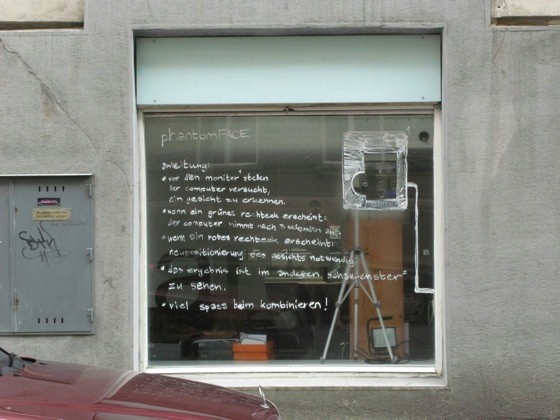 phantomFACE
anleitung:
• vor den monitor stellen
der computer versucht,
ein gesicht zu erkennen.
• wenn ein grünes rechteck erscheint:
der computer nimmt nach 3 sekunden
• wenn ein rotes rechteck erscheint:
neupositionierung des gesichts notwendig
• das ergebnis ist im anderen schaufenster
zu sehen.
• viel spass beim kombinieren!